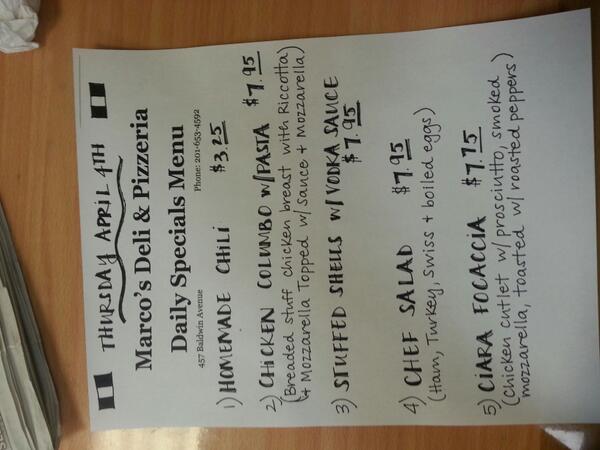 THURSDAY APRIL 4TH
Marco's Deli & Pizzeria
Daily Specials Menu
457 Baldwin Avenue Phone: 201-653-4592
1) HOMEMADE CHILI $3.25
2) CHICKEN COLUMBO W/PASTA $7.95
(Breaded stuff chicken breast with Riccotta
+ Mozzarella Topped w/ sauce + Mozzarella)
3) STUFFED SHELLS W/ VODKA SAUCE
$7.95
4) CHEF SALAD $7.95
(Ham, Turkey, Swiss + boiled eggs)
5) CIARA FOCACCIA $7.75
(Chicken cutlet w/ prosciuntto, smoked
mozzarella, toasted w/ roasted peppers)